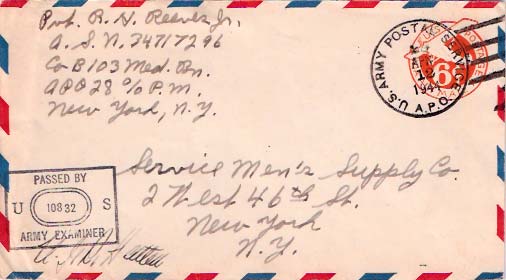 Pvt. R. H. Reeves Jr.
A. S. N. 34717296
Co B 103 Med. Bn.
APO 28 c/o P.M.
New York, N.Y.
U.S. ARMY POSTAL SERVICE
APR
12
194
A.P.O.
U.S. POSTAGE
6
Service Men's Supply Co.
2 West 46th St.
New York
N.Y.
PASSED BY
U 10832 S
ARMY EXAMINER